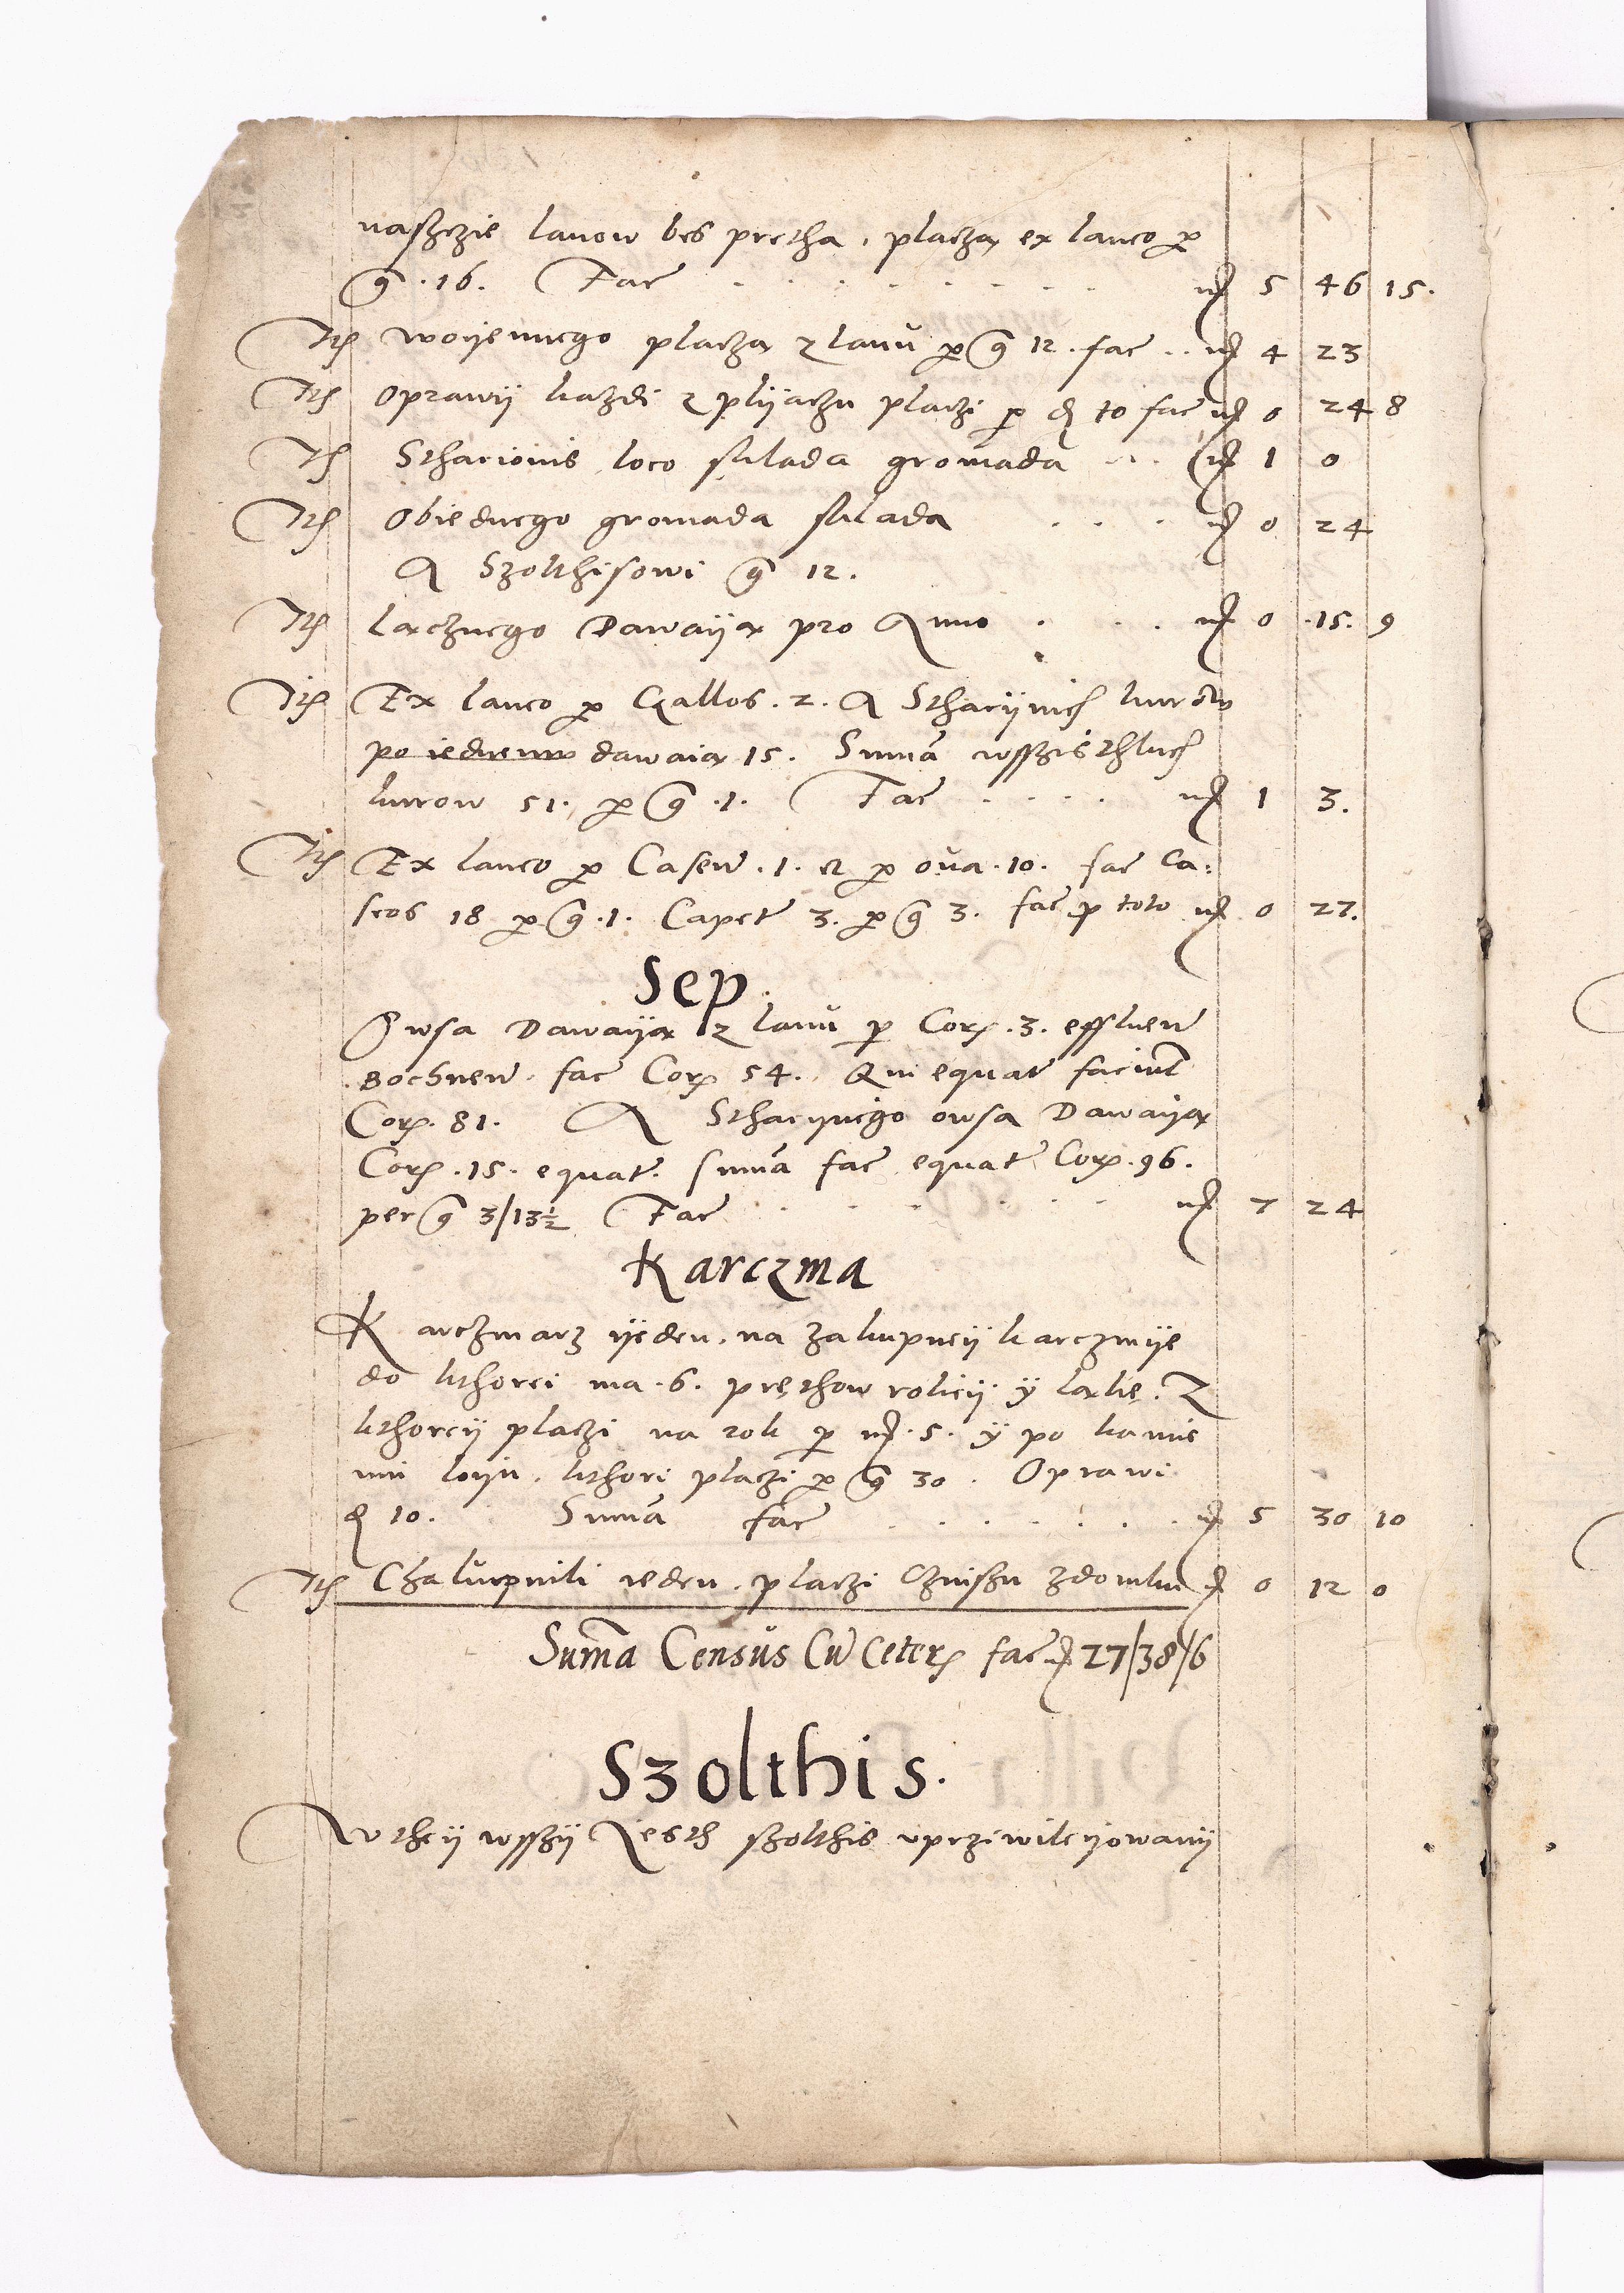 naszczie lanow bes pretha, placzą ex laneo p
gr. 16. Fac . . . . . . . . mr 5 46 15.
It Woyennego placzą z lanu p gr 12. fac .. mr 4 23
It Oprawy kazdi z plyaczu placzi p d to fac mr 0 24 8
It Stharionis loco sklada gromada . . mr 1 0
It Obiednego gromada sklada . . . mr 0 24
A Szolthisowi gr 12.
It Lącznego Dawayą pro Anno . . . mr 0 .15. 9
It Ex laneo p Gallos. 2. A Stharynich kurow
po iednemu dawaią 15. Summa wsszisthkich
kurow 51. p gr .1. Fac . . . . mr 1 3.
It Ex laneo p Caseu .1. et p ova .10. fac Ca:
seos 18 p gr .1. Capet 3. p gr 3. fac p toto mr 0 27.
Sep.
Owsa Dawayą z lanu p Cor .3. effluen
Bochnen. fac Cor 54. Qui equat faciunt
Cor. 81. A Stharynigo owsa Dawayą
Cor .15. equat. summa fac equat Cor .96.
per gr 3/13½ Fac . . . . . . mr 7 24
Karczma
Karczmarz yeden, na zakupney karczmye
do kthorei ma .6. pręthow rolicy y ląkę. Z
kthorey placzi na rok p mr .5. y po kamie
niu loyu, kthori placzi p gr 30. Oprawi
d 10. Summa fac . . . . . . mr 5 30 10
It Chalupnik ieden, placzi Czinszu zdomku mr 0 12 0
Summa Census Cu Ceter fac mr 27/38/6
Szolthis.
W they wsszy Iesth szolthis uprziwileyowany